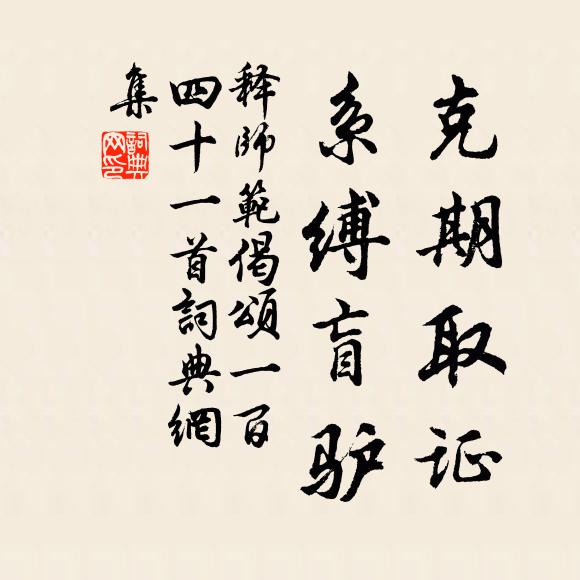 克期取证
系缚盲驴
释師範偈頌一百
四十一首詞典網
集
詞典
网印